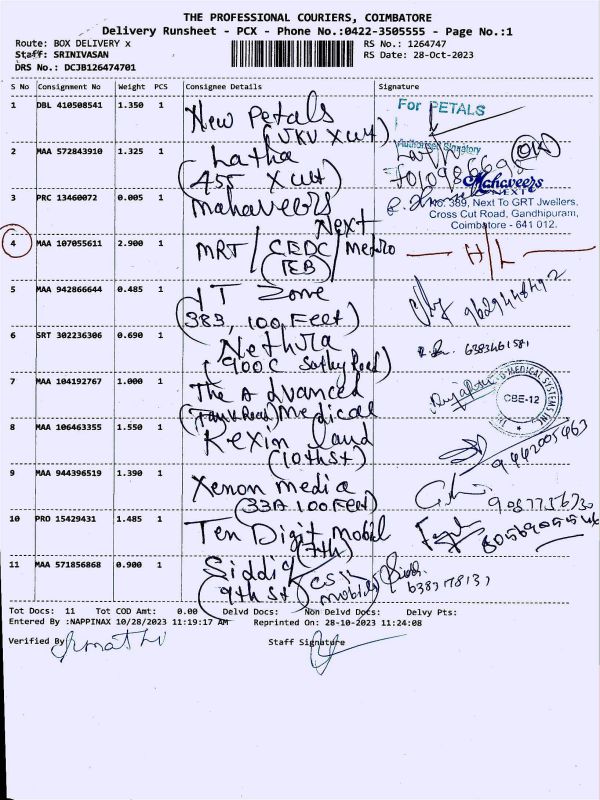 THE PROFESSIONAL COURIERS, COIMBATORE
Delivery Runsheet - PCX - Phone No.:0422-3505555 - Page No.:1
Route: BOX DELIVERY x
RS No.: 1264747
Staff: SRINIVASAN
RS Date: 28-Oct-2023
DRS No.: DCJB126474701
S No Consignment No Weight PCS Consignee Details Signature
1 DBL 410508541 1.350 1 New Petals For PETALS
(VKV X Cut) Authorised Signatory
2 MAA 572843910 1.325 1 Latha
(455 X Cut) OK
3 PRC 13460072 0.005 1 Mahaveers Next
Mahaveers
NEXT
No. 389, Next To GRT Jwellers,
Cross Cut Road, Gandhipuram,
Coimbatore - 641 012.
4 MAA 107055611 2.900 1 MRT / CEDC / Metro H/L
(TEB)
5 MAA 942866644 0.485 1 IT Zone
(383, 100, Feet)
6 SRT 302236306 0.690 1 Nethra 6383461581
(900C Sathy Road)
7 MAA 104192767 1.000 1 The Advanced
(Tank Road) Medical
MEDICAL SYSTEMS
CBE-12
8 MAA 106463355 1.550 1 Rexin Land
(10th St) 9442005463
9 MAA 944396519 1.390 1 Xenon Media
(33A 100 Feet)
10 PRO 15429431 1.485 1 Ten Digit Mobil
(7th)
11 MAA 571856868 0.900 1 Siddi
(9th St) CS Mobiles
Tot Docs: 11 Tot COD Amt: 0.00 Delvd Docs: Non Delvd Docs: Delvy Pts:
Entered By :NAPPINAX 10/28/2023 11:19:17 AM Reprinted On: 28-10-2023 11:24:08
Verified By Staff Signature